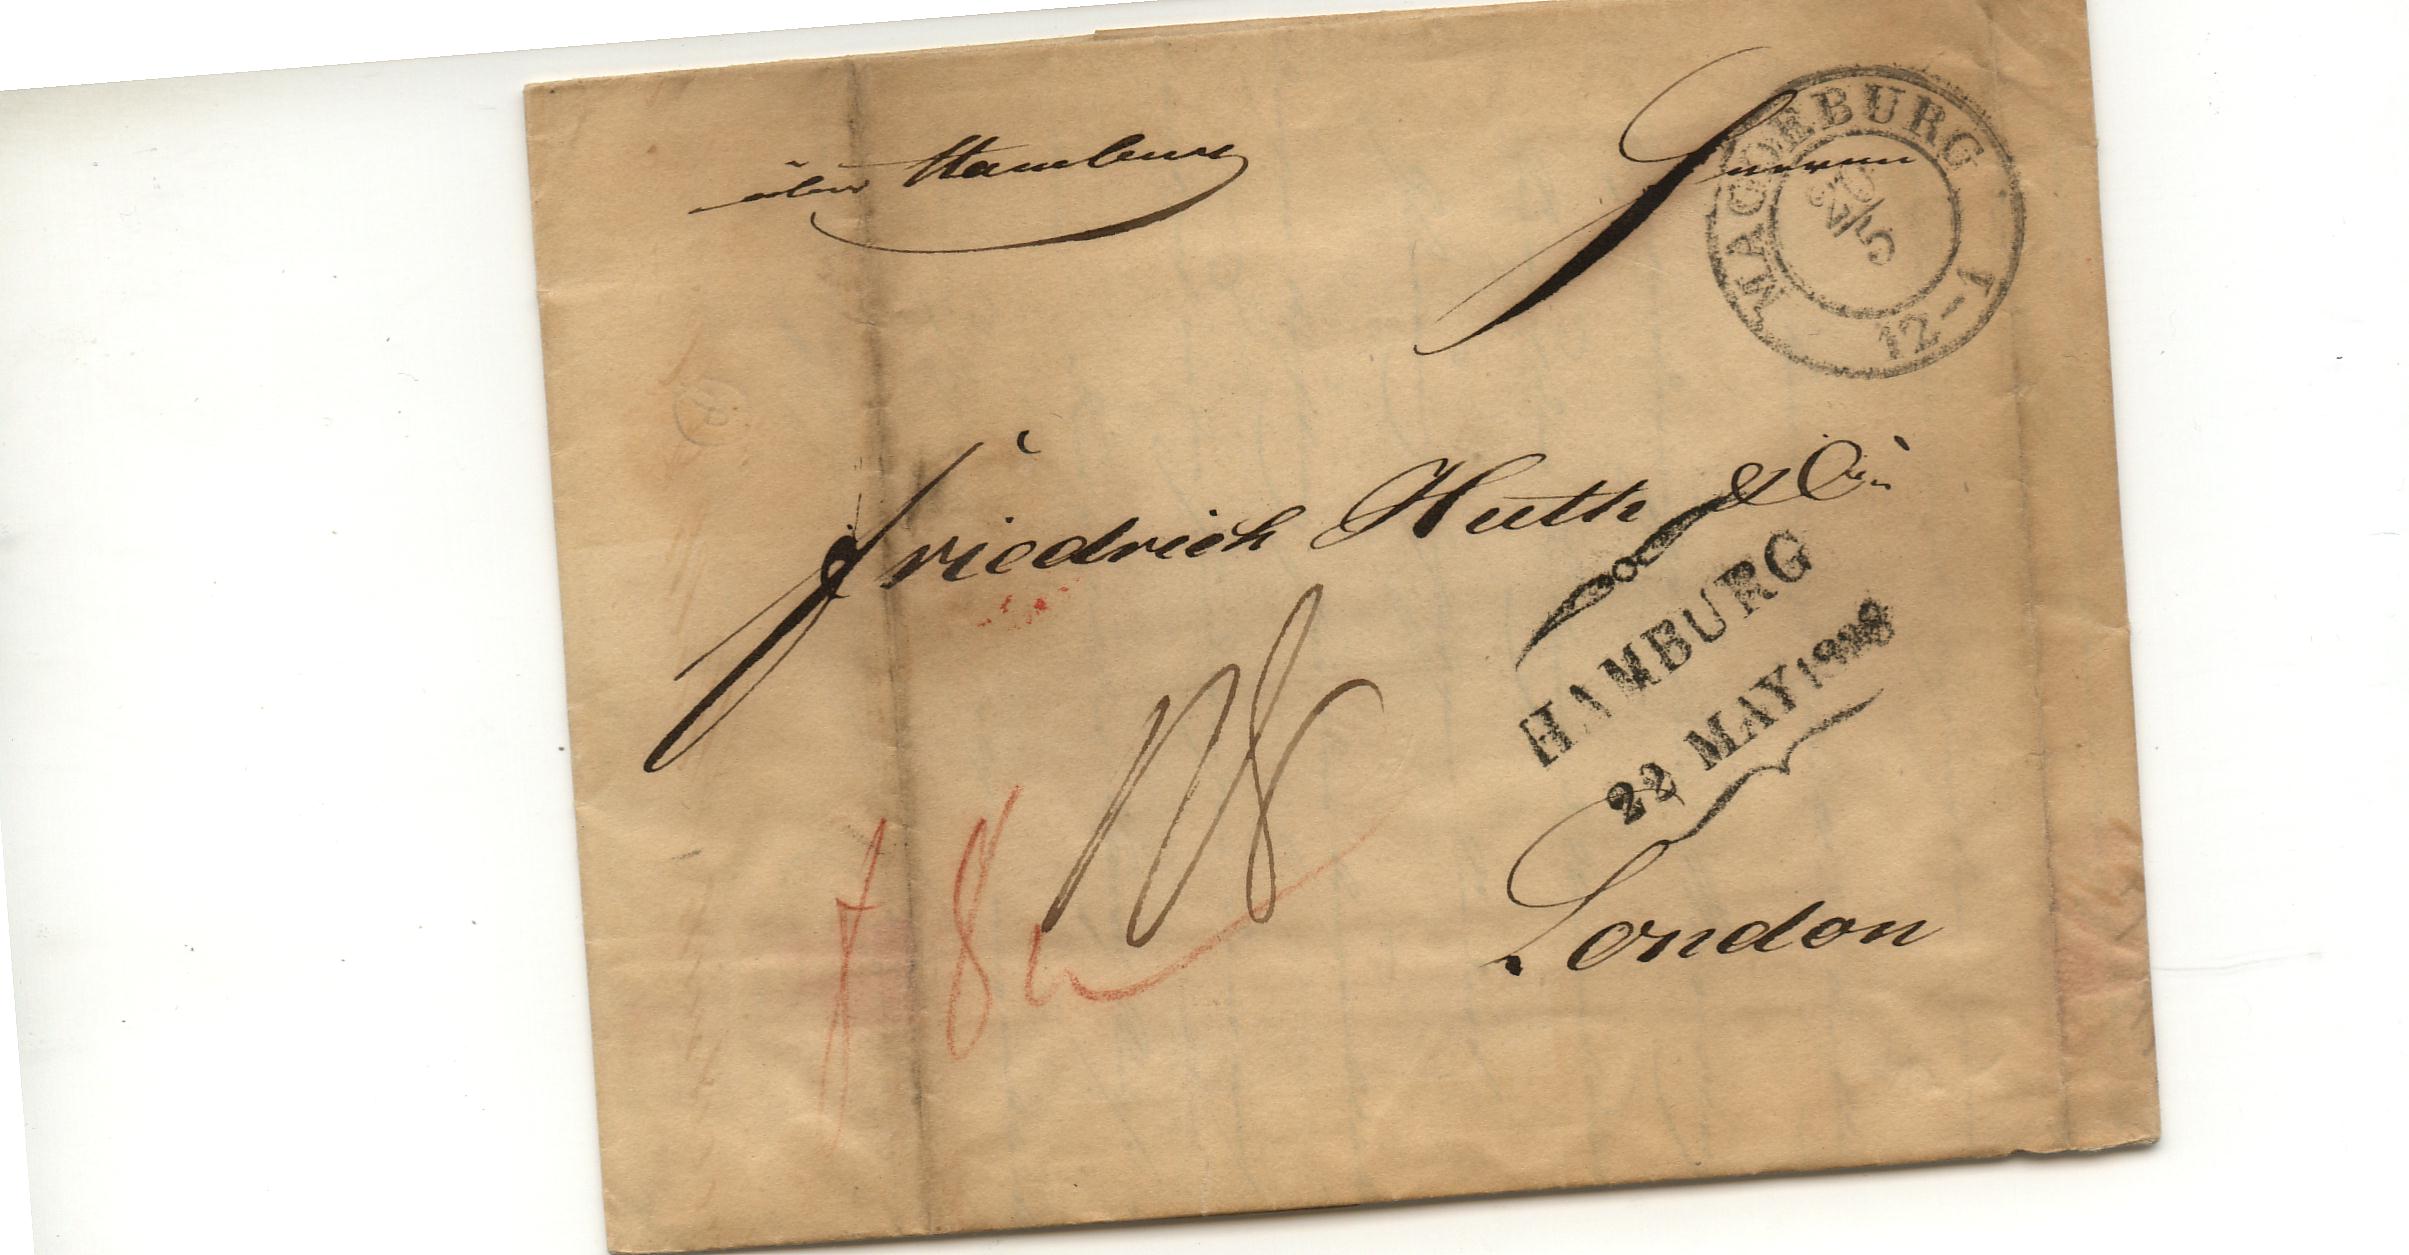 über Hamburg
Herren
MAGDEBURG
20/5
12-1
Friedrich Huth & Co.
HAMBURG
22 MAY
London